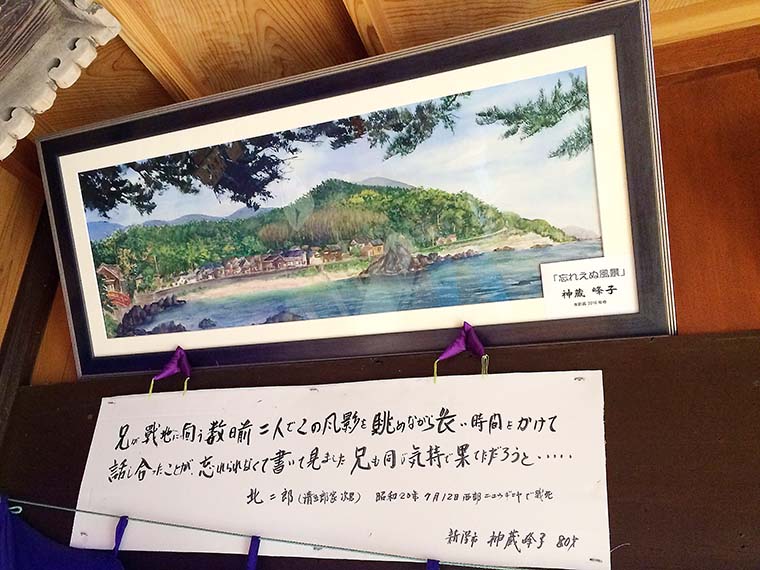 「忘れえぬ風景」
神蔵 峰子
兄が戦地に向う数日前二人でこの風影を眺めながら長い時間をかけて
話し合ったことが、忘れられなくて書いて見ました兄も同じ気持で果てただろうと・・・・・
北二郎（清五郎家次男） 昭和20年7月12日西部ニューギニヤで戦死
新潟市 神蔵峰子 80才